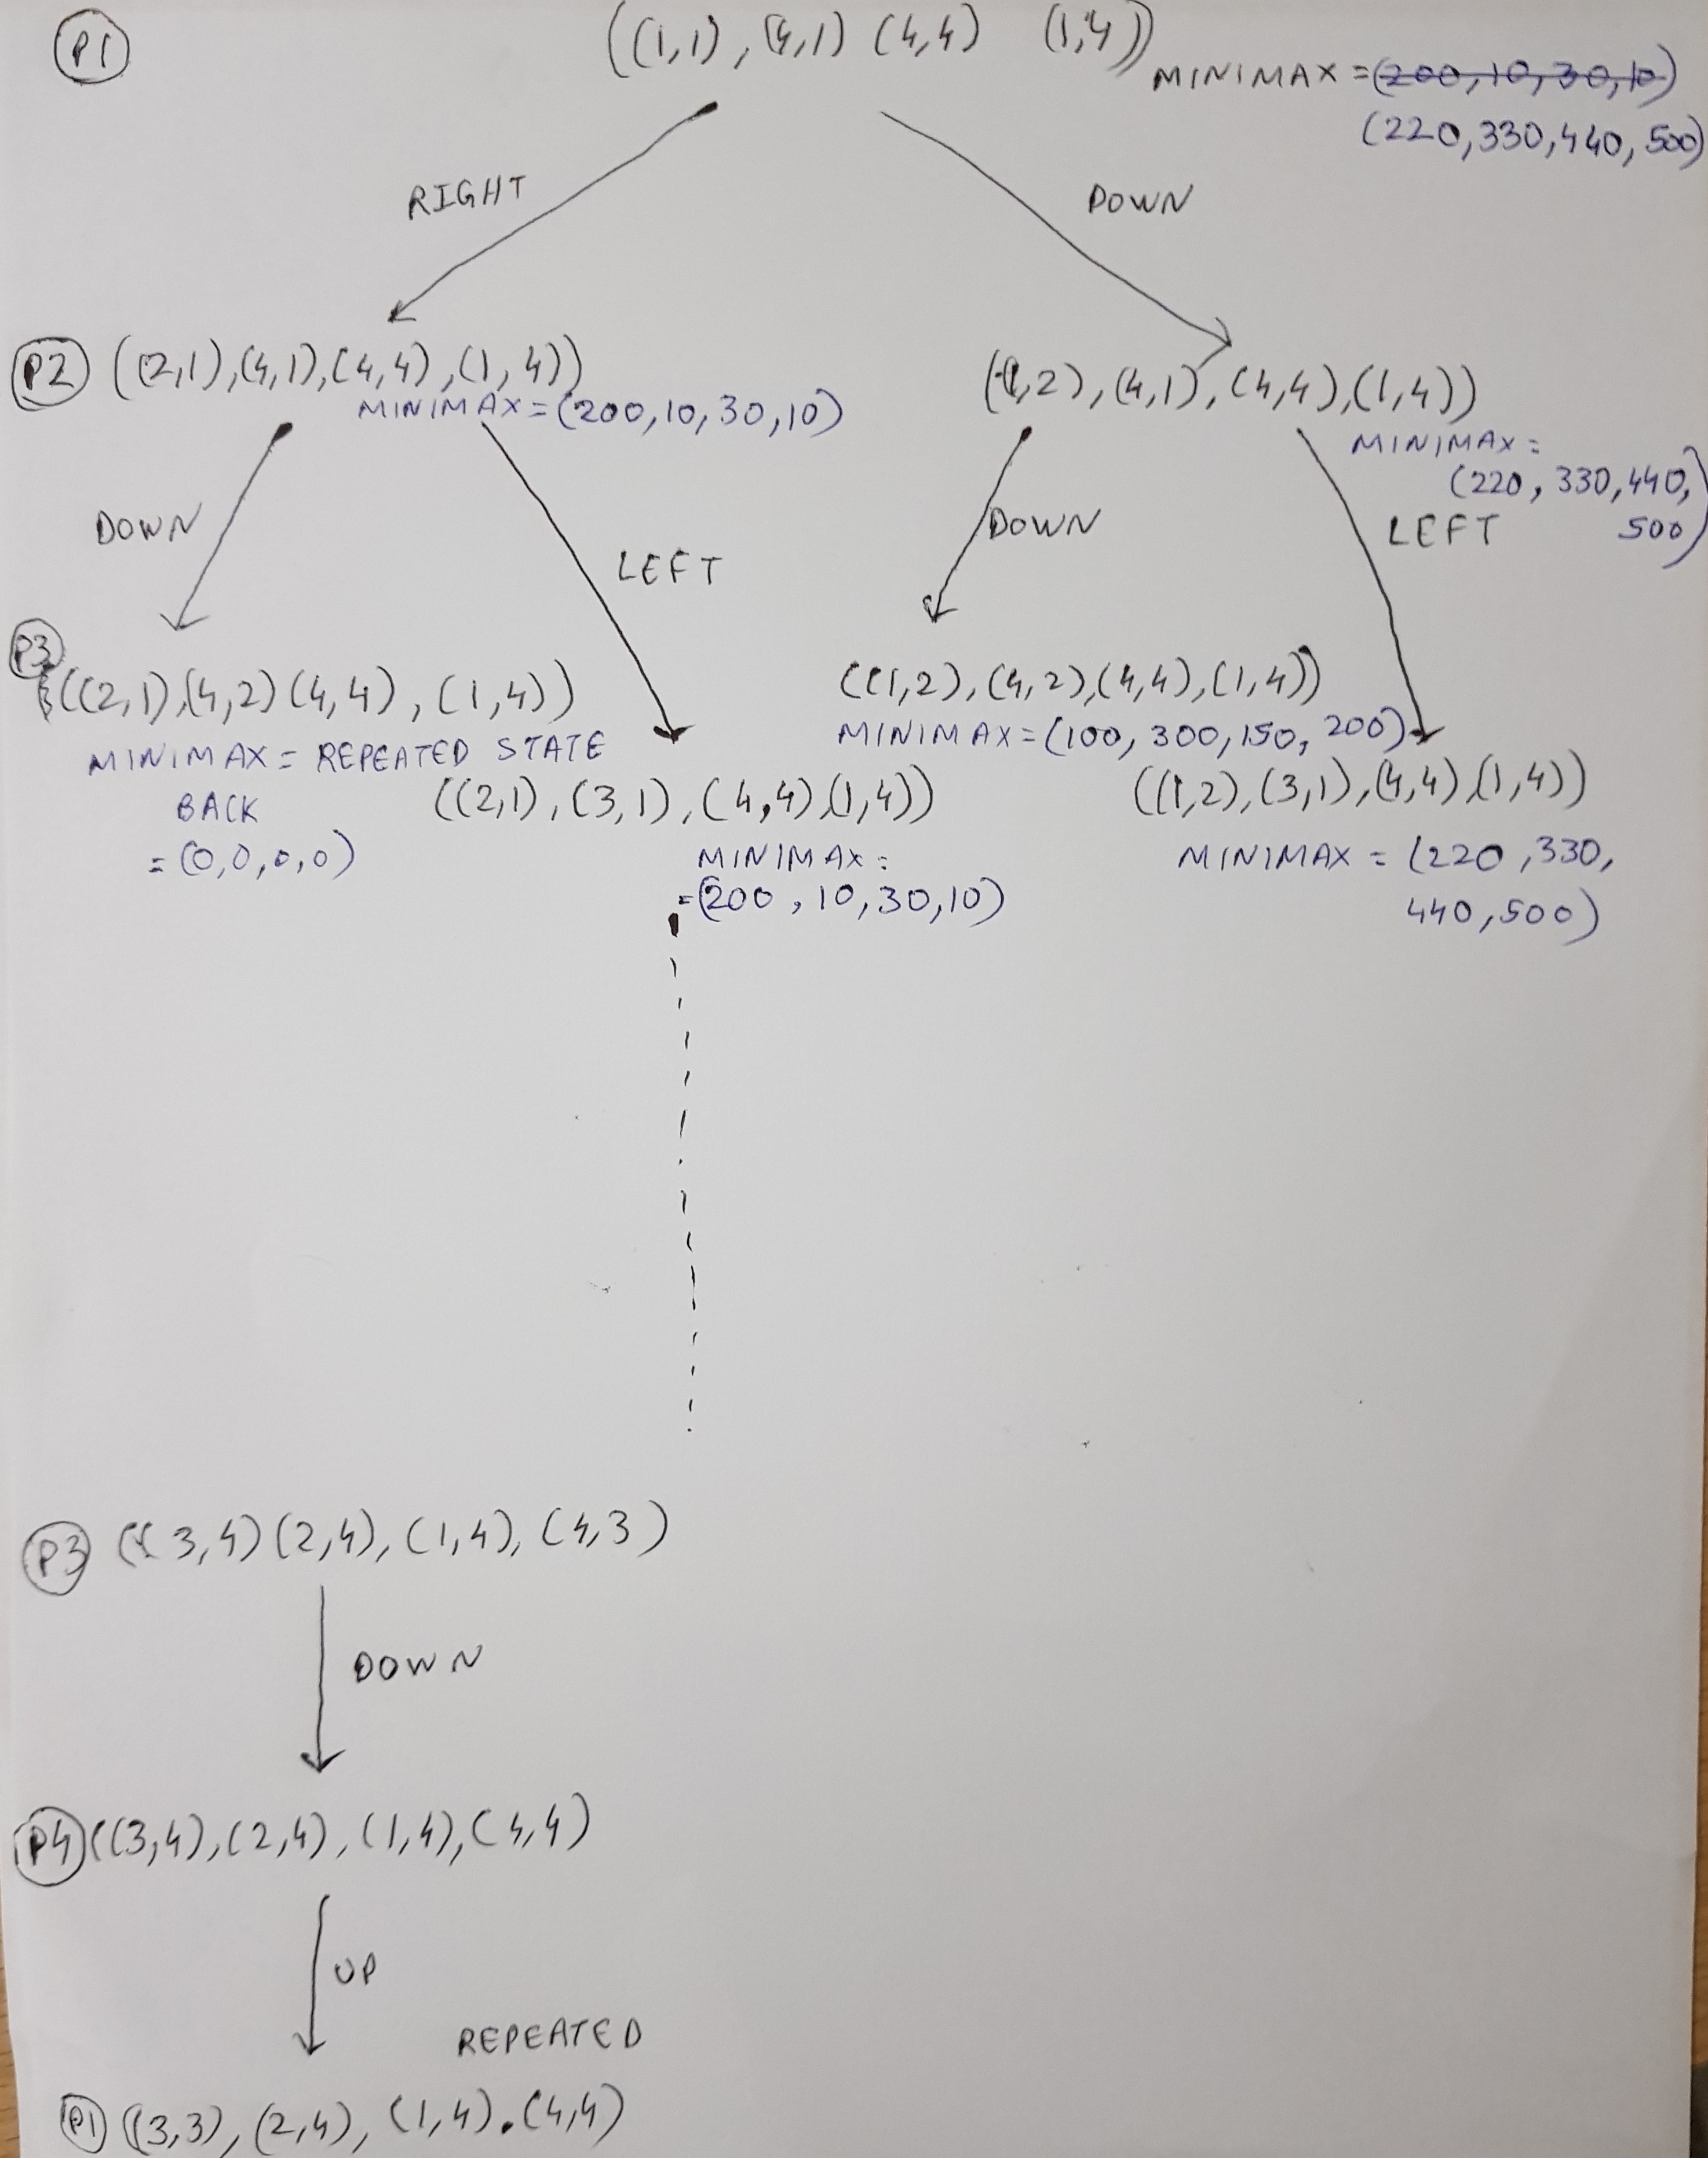 P1 ((1,1), (4,1) (4,4) (1,4))
MINIMAX = (200,10,30,10)
(220,330,440,500)
RIGHT
DOWN
P2 ((2,1),(4,1),(4,4),(1,4))
MINIMAX = (200,10,30,10)
((1,2),(4,1),(4,4),(1,4))
MINIMAX =
(220,330,440,
500)
DOWN
LEFT
DOWN
LEFT
P3
((2,1),(4,2)(4,4),(1,4))
MINIMAX = REPEATED STATE
BACK
= (0,0,0,0)
((2,1),(3,1),(4,4),(1,4))
MINIMAX =
=(200,10,30,10)
((1,2),(4,2),(4,4),(1,4))
MINIMAX=(100,300,150,200)
((1,2),(3,1),(4,4),(1,4))
MINIMAX = (220,330,
440,500)
P3 ((3,4)(2,4),(1,4),(4,3)
DOWN
P4 ((3,4),(2,4),(1,4),(4,4)
UP
REPEATED
P1 ((3,3),(2,4),(1,4).(4,4)